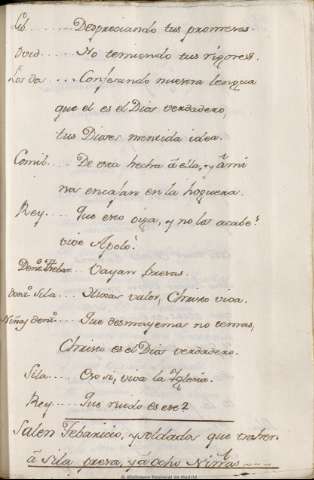 Lib. .... Despreciando tus promesas.
Ovid. .... No temiendo tus rigores.
Los dos .... Confesando nuestra lengua
que el es el Dios verdadero,
tus Dioses mentida idea.
Comit. .... De esta hecha á ella, y á mi
nos encajan en la hoguera.
Rey .... Que esto oiga, y no los acabe!
vive Apolo!
Dent. .... Vayan presas.
dent. Sila .... Hixas valor, Christo viva.
Niñas dent. .... Que desmayemos no temas,
Christo es el Dios verdadero.
Sila .... Eso si, viva la Iglesia.
Rey .... Que ruido es ese?
Salen Tebaricio, y soldados que trahen
á Sila presa, y á ocho Niñas